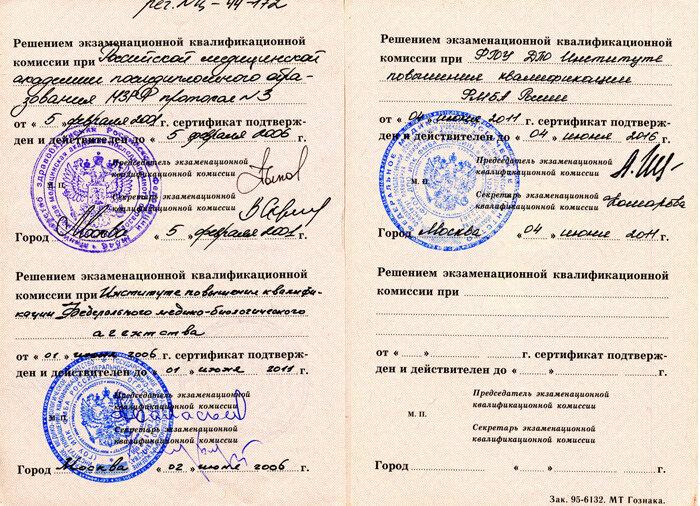 рег. № Ц - 44 - 172
Решением экзаменационной квалификационной
комиссии при Российской медицинской
академии последипломного обра-
зования МЗРФ протокол № 3
от « 5 » февраля 2001 г. сертификат подтверж-
ден и действителен до « 5 » февраля 2006 г.
Председатель экзаменационной
квалификационной комиссии
М. П.
Секретарь экзаменационной
квалификационной комиссии
Город Москва « 5 » февраля 2001 г.
Решением экзаменационной квалификационной
комиссии при Институте повышения квалифи-
кации Федерального медико-биологического
агентства
от « 01 » июня 2006 г. сертификат подтверж-
ден и действителен до « 01 » июня 2011 г.
Председатель экзаменационной
квалификационной комиссии
Секретарь экзаменационной
квалификационной комиссии
Город Москва « 02 » июня 2006 г.
Решением экзаменационной квалификационной
комиссии при ФГОУ ДПО Институте
повышения квалификации
ФМБА России
от « 04 » июня 2011 г. сертификат подтверж-
ден и действителен до « 04 » июня 2016 г.
Председатель экзаменационной
квалификационной комиссии
М. П.
Секретарь экзаменационной
квалификационной комиссии
Город Москва « 04 » июня 2011 г.
Решением экзаменационной квалификационной
комиссии при
от « » г. сертификат подтверж-
ден и действителен до « » г.
Председатель экзаменационной
квалификационной комиссии
М. П.
Секретарь экзаменационной
квалификационной комиссии
Город « » г.
Зак. 95-6132. МТ Гознака.